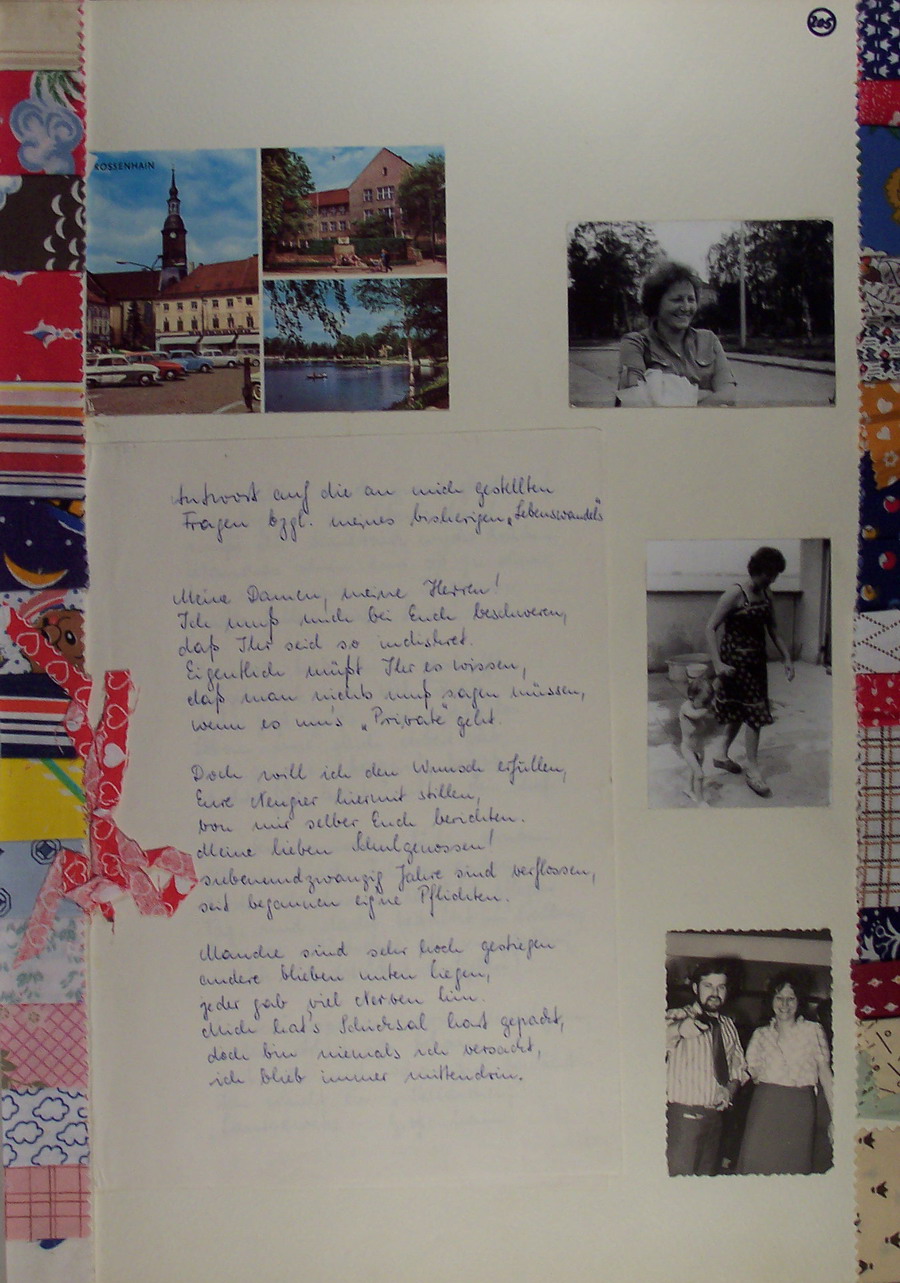 205
ROSSENHAIN
Antwort auf die an mich gestellten
Fragen bzgl. meines bisherigen „Lebenswandels“
Meine Damen, meine Herren!
Ich muß mich bei Euch beschweren,
daß Ihr seid so indiskret.
Eigentlich müßt Ihr es wissen,
daß man nichts muß sagen müssen,
wenn es um's „Private“ geht.
Doch will ich den Wunsch erfüllen,
Eure Neugier hiermit stillen,
von mir selber Euch berichten.
Meine lieben Schulgenossen!
siebenundzwanzig Jahre sind verflossen,
seit begannen eigne Pflichten.
Manche sind sehr hoch gestiegen
andere blieben unten liegen,
jeder gab viel Nerven hin.
Mich hat's Schicksal hart gepackt,
doch bin niemals ich versackt,
ich blieb immer mittendrin.